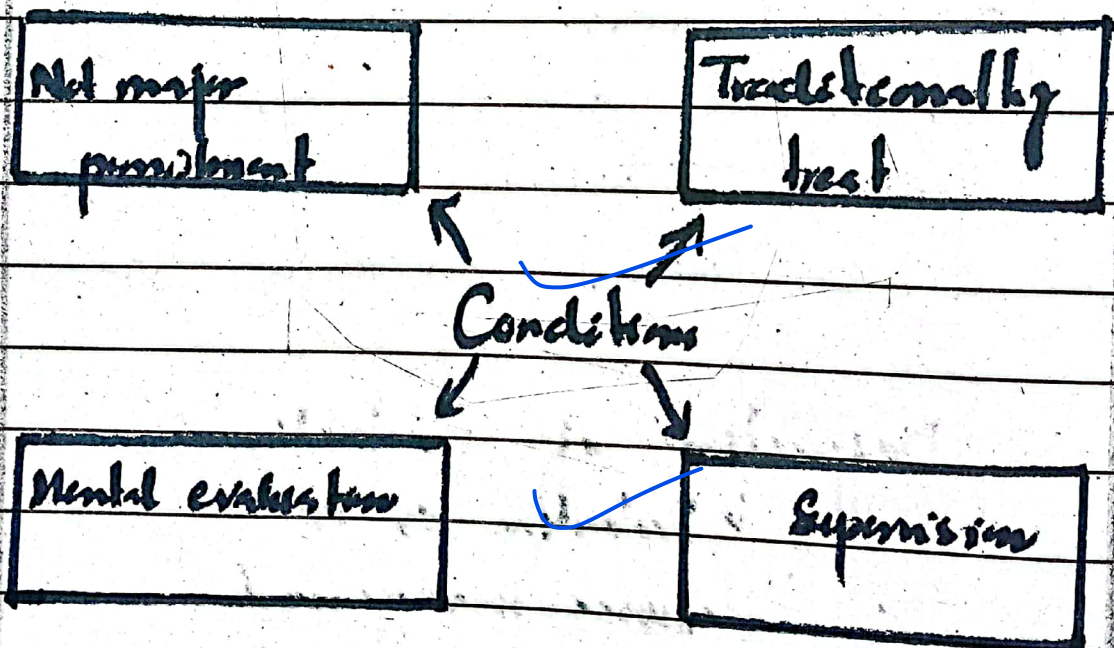 Not major
punishment
Traditionally
treat
Conditions
Mental evaluation
Supervision